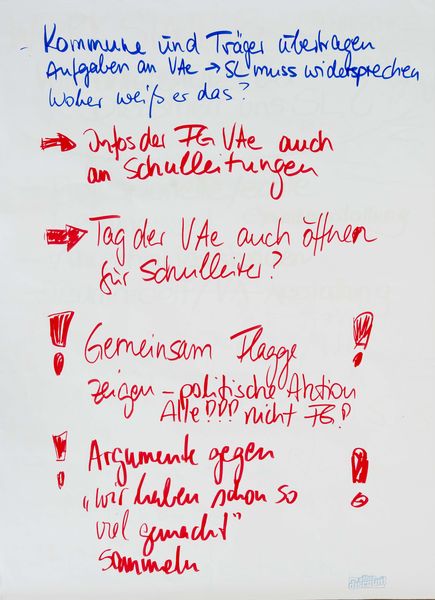 - Kommune und Träger übertragen
Aufgaben an VAe → SL muss widersprechen
Woher weiß er das?
➡ Infos der FG VAe auch
an Schulleitungen
➡ Tag der VAe auch öffnen
für Schulleiter?
! Gemeinsam Flagge !
zeigen - politische Aktion
Alle!!! nicht FG!
! Argumente gegen !
"wir haben schon so
viel gemacht"
sammeln